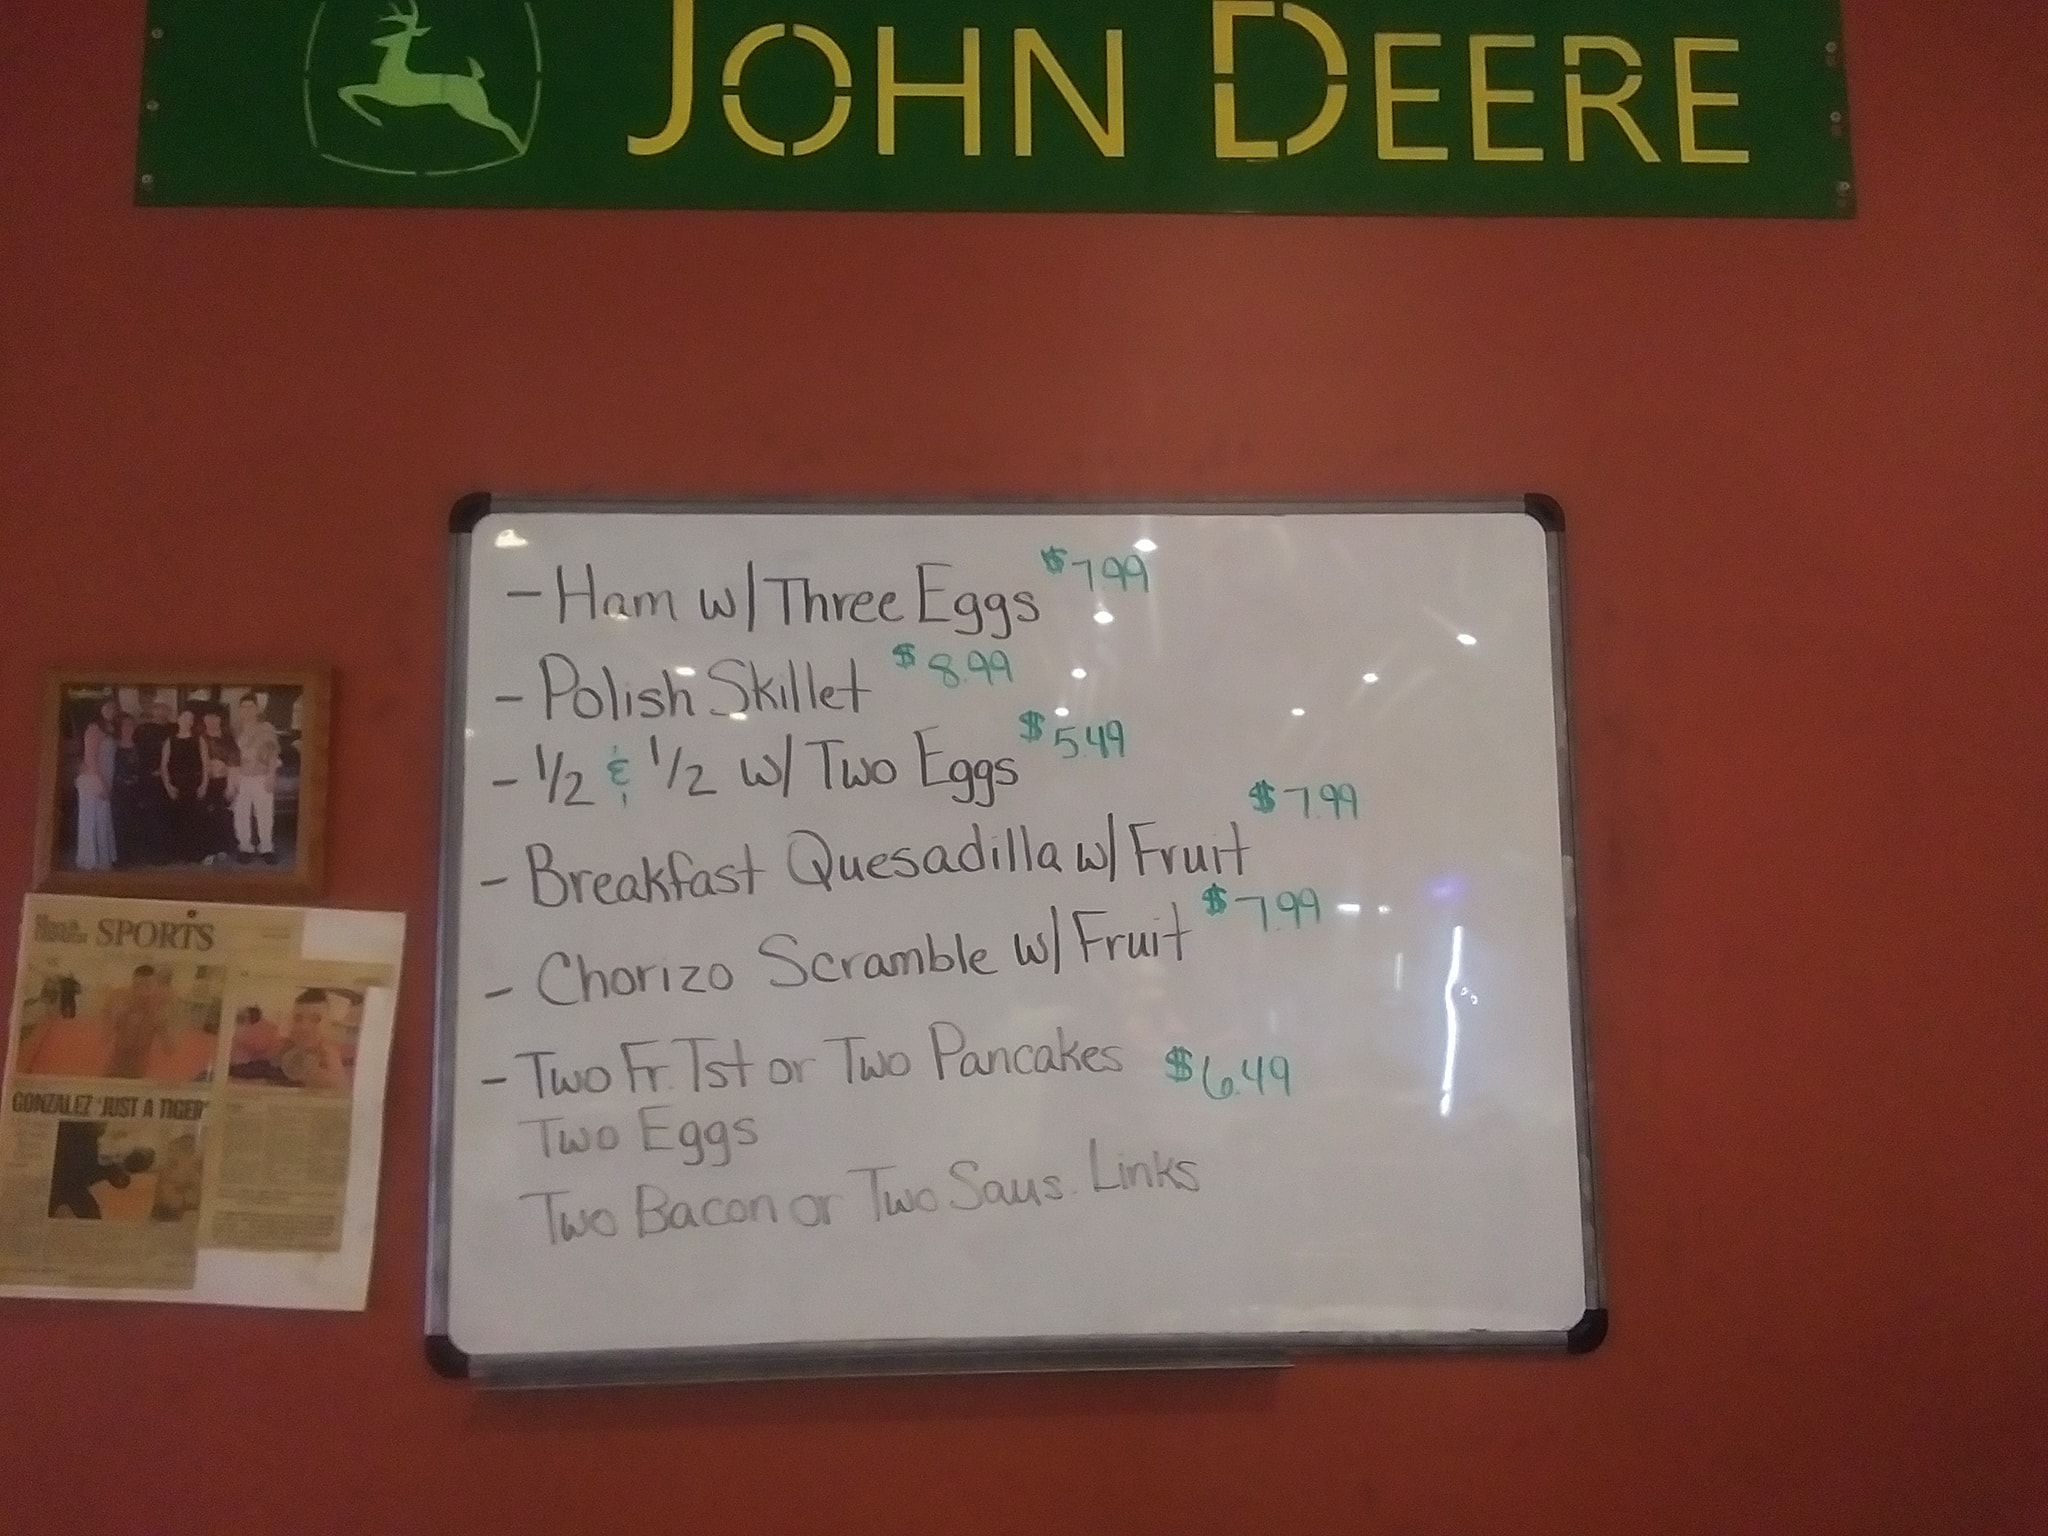 JOHN DEERE
- Ham w/ Three Eggs $7.99
- Polish Skillet $8.99
- 1/2 & 1/2 w/ Two Eggs $5.49
- Breakfast Quesadilla w/ Fruit $7.99
- Chorizo Scramble w/ Fruit $7.99
- Two Fr. Tst or Two Pancakes $6.49
Two Eggs
Two Bacon or Two Saus. Links
SPORTS
GONZALEZ 'JUST A TIGER'